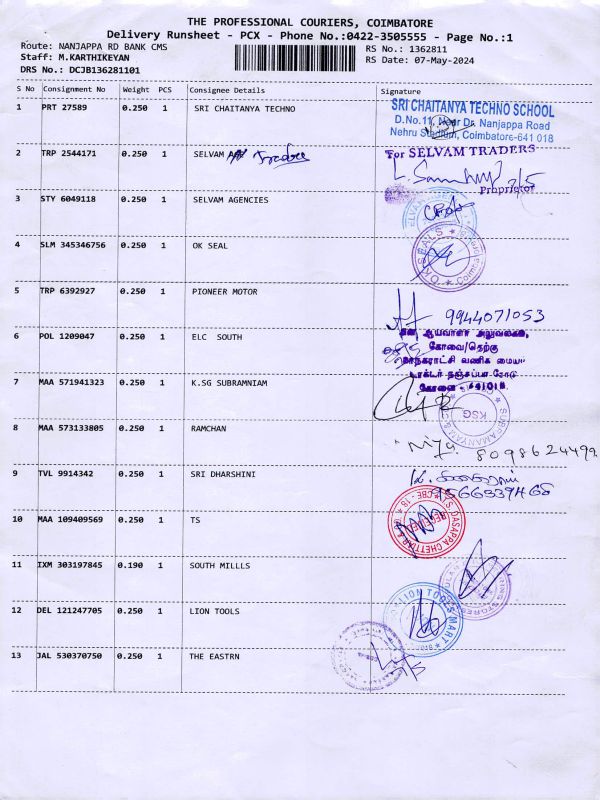 THE PROFESSIONAL COURIERS, COIMBATORE
Delivery Runsheet - PCX - Phone No.:0422-3505555 - Page No.:1
Route: NANJAPPA RD BANK CMS
RS No.: 1362811
Staff: M.KARTHIKEYAN
RS Date: 07-May-2024
DRS No.: DCJB136281101
S No Consignment No Weight PCS Consignee Details Signature
1 PRT 27589 0.250 1 SRI CHAITANYA TECHNO
SRI CHAITANYA TECHNO SCHOOL
D.No.11, Near Dr. Nanjappa Road
Nehru Stadium, Coimbatore-641 018
2 TRP 2544171 0.250 1 SELVAM Traders
For SELVAM TRADERS
Proprietor
3 STY 6049118 0.250 1 SELVAM AGENCIES
4 SLM 345346756 0.250 1 OK SEAL
OK SEALS
5 TRP 6392927 0.250 1 PIONEER MOTOR
9944071053
6 POL 1209047 0.250 1 ELC SOUTH
கோவை/தெற்கு
7 MAA 571941323 0.250 1 K.SG SUBRAMNIAM
KSG
8 MAA 573133805 0.250 1 RAMCHAN
9 TVL 9914342 0.250 1 SRI DHARSHINI
10 MAA 109409569 0.250 1 TS
T.S. DASAPPA CHETTIAR
11 IXM 303197845 0.190 1 SOUTH MILLLS
12 DEL 121247705 0.250 1 LION TOOLS
LION TOOLS MART
13 JAL 530370750 0.250 1 THE EASTRN